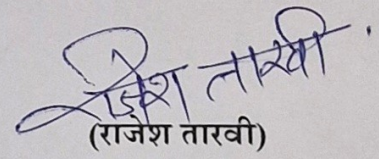 राजेश तारवी
(राजेश तारवी)